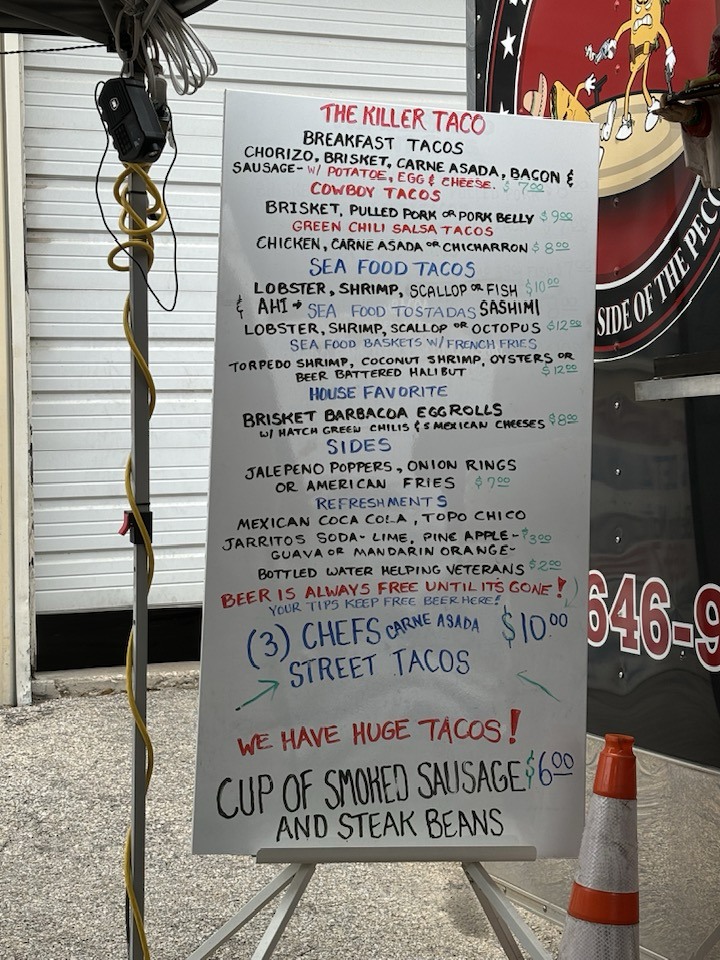 THE KILLER TACO
BREAKFAST TACOS
CHORIZO, BRISKET, CARNE ASADA, BACON &
SAUSAGE- W/ POTATOE, EGG & CHEESE. $7.00
COWBOY TACOS
BRISKET, PULLED PORK OR PORK BELLY $9.00
GREEN CHILI SALSA TACOS
CHICKEN, CARNE ASADA OR CHICHARRON $8.00
SEA FOOD TACOS
LOBSTER, SHRIMP, SCALLOP OR FISH $10.00
& AHI → SEA FOOD TOSTADAS SASHIMI
LOBSTER, SHRIMP, SCALLOP OR OCTOPUS $12.00
SEA FOOD BASKETS W/ FRENCH FRIES
TORPEDO SHRIMP, COCONUT SHRIMP, OYSTERS OR
BEER BATTERED HALIBUT $12.00
HOUSE FAVORITE
BRISKET BARBACOA EGGROLLS
W/ HATCH GREEN CHILIS & 5 MEXICAN CHEESES $8.00
SIDES
JALEPENO POPPERS, ONION RINGS
OR AMERICAN FRIES $7.00
REFRESHMENTS
MEXICAN COCA COLA, TOPO CHICO
JARRITOS SODA- LIME, PINE APPLE- $3.00
GUAVA OR MANDARIN ORANGE-
BOTTLED WATER HELPING VETERANS $2.00
BEER IS ALWAYS FREE UNTIL ITS GONE!
YOUR TIPS KEEP FREE BEER HERE!
(3) CHEFS CARNE ASADA $10.00
STREET TACOS
WE HAVE HUGE TACOS!
CUP OF SMOKED SAUSAGE $6.00
AND STEAK BEANS
SIDE OF THE PEC
646-9